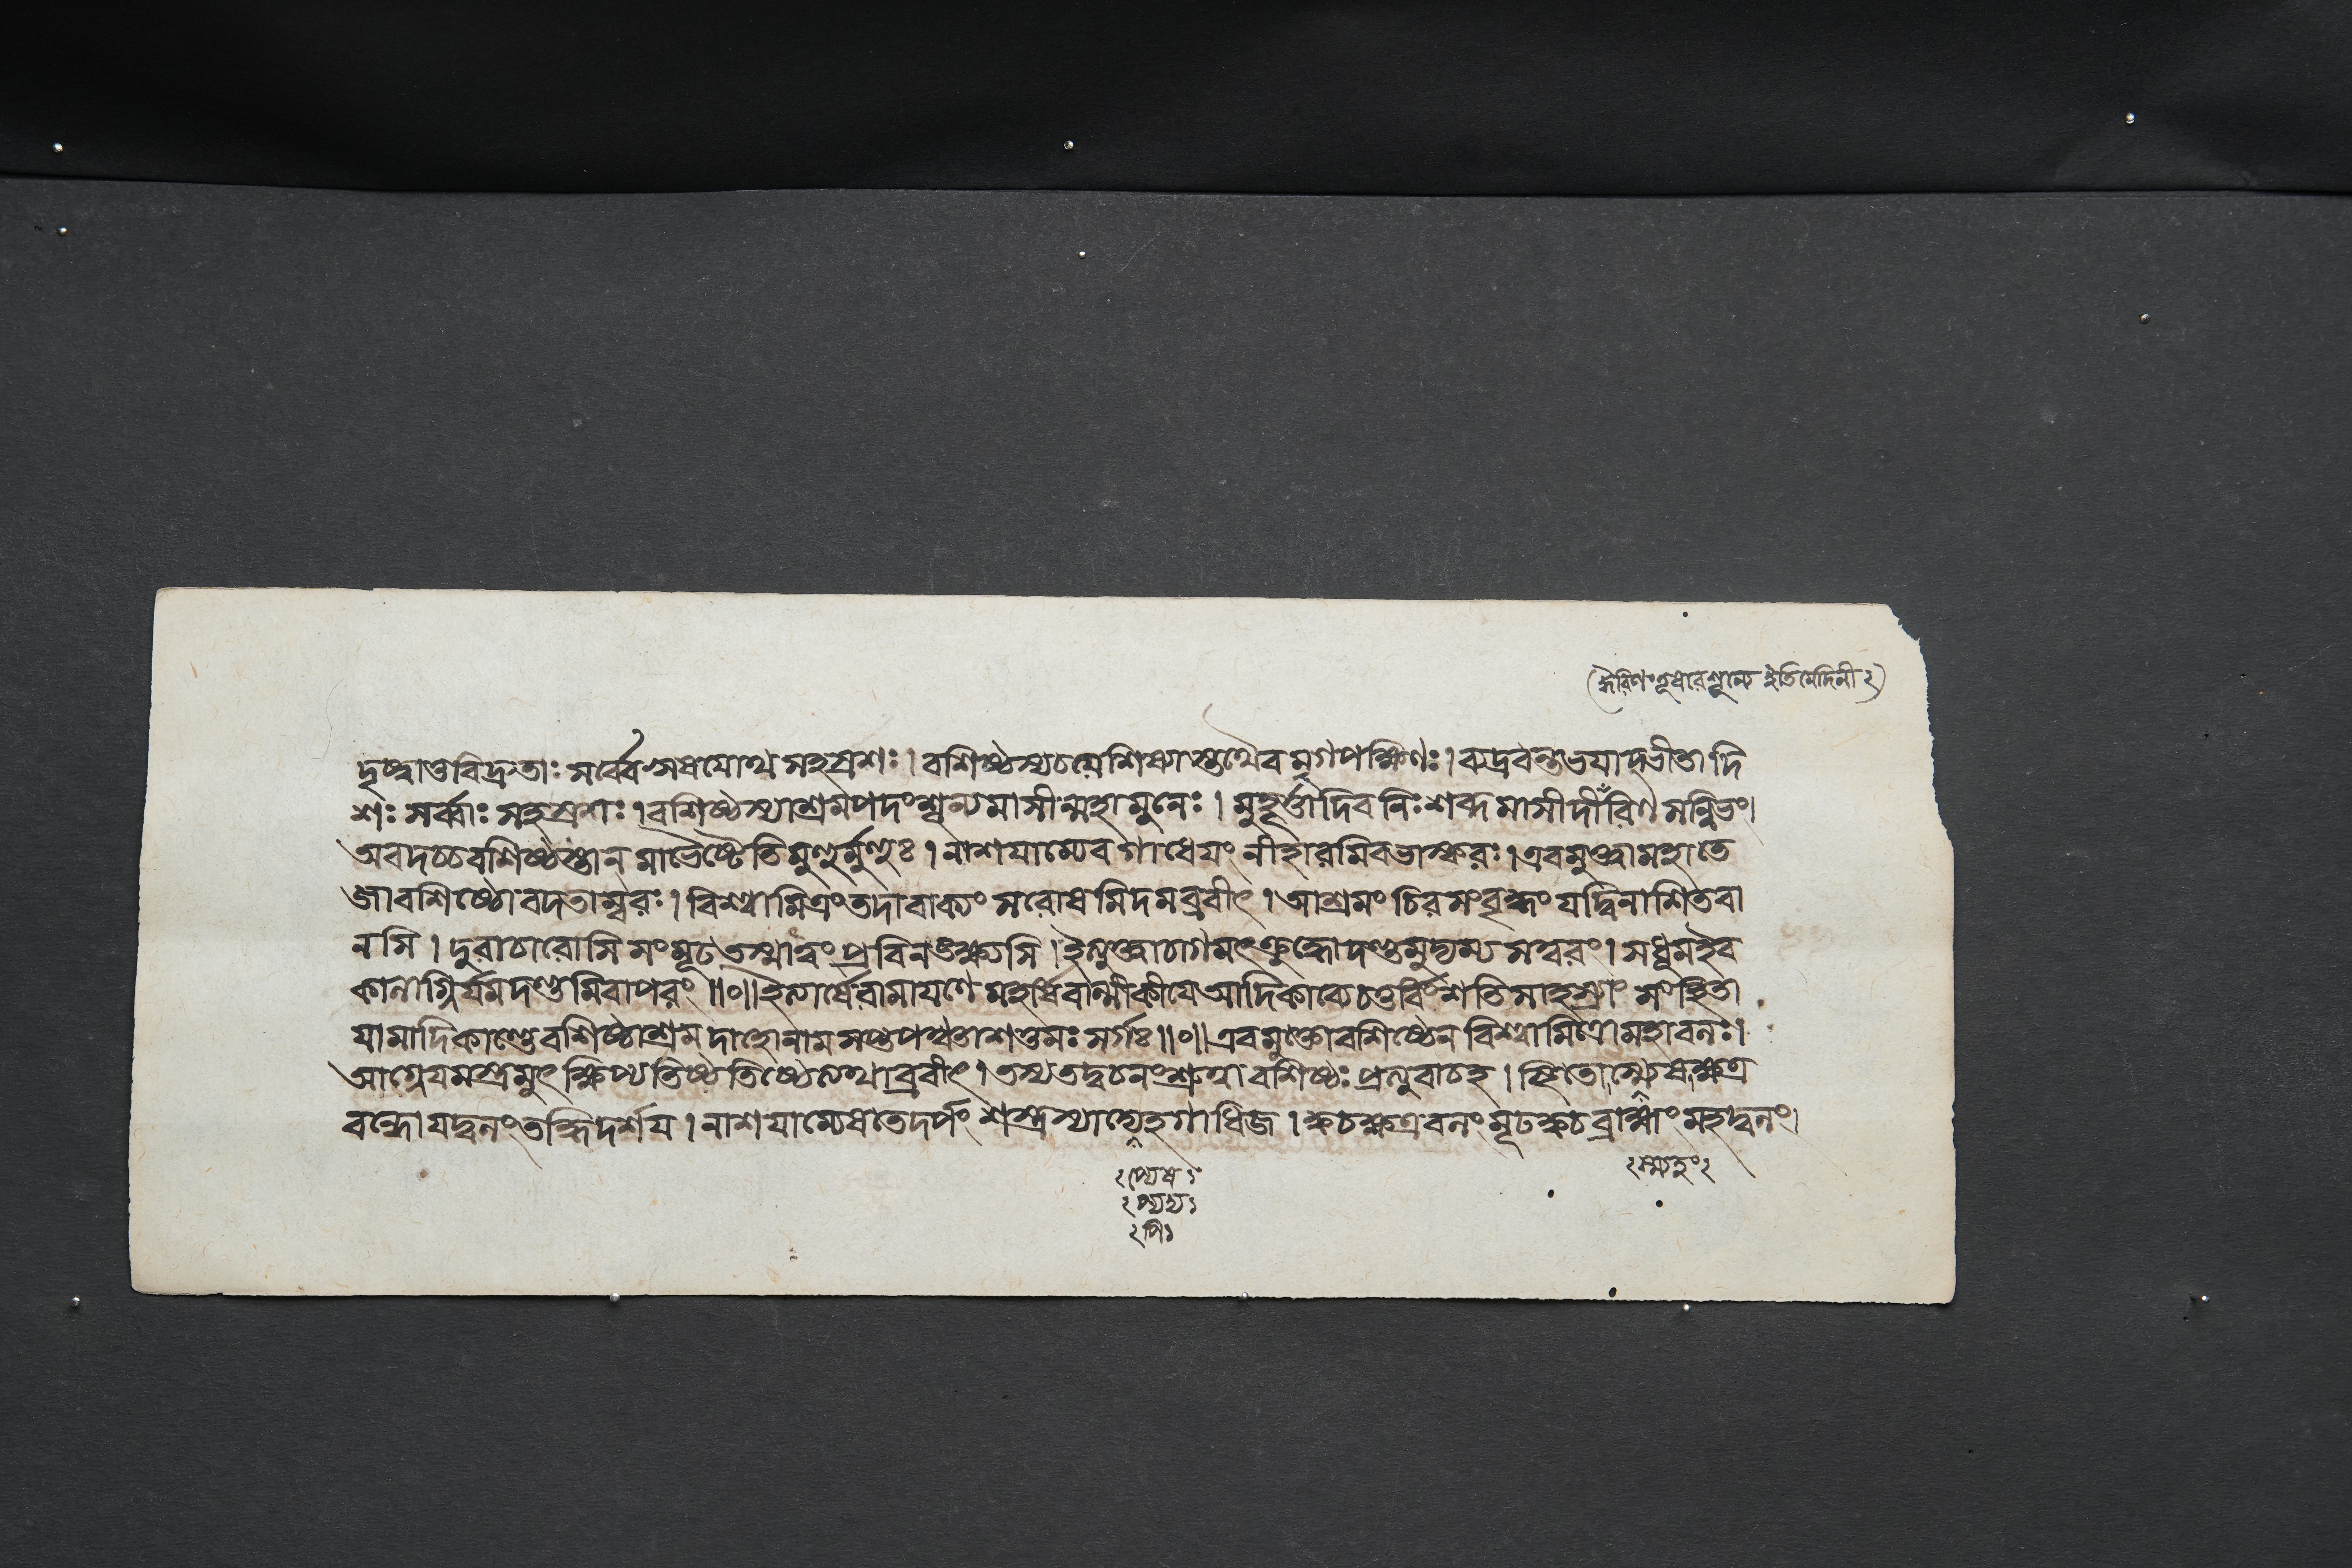 (ईरिणंतूषरेशून्येइतिमेदिनी२)
দৃষ্ট্বাতুবিদ্রুতাঃ সর্ব্বেঋষয়োথ সহস্রশঃ। বশিষ্ঠস্যচয়েশিষ্যাস্তথৈব মৃগপক্ষিণঃ। বিদ্রবন্তিভয়াদ্ভীতাদি
শঃ সর্ব্বাঃ সহস্রশঃ। বশিষ্ঠস্যাশ্রমপদংশূন্যমাসীন্মহামুনেঃ। মুহূর্ত্তাদিবনিঃশব্দমাসীদীরিণসন্নিভং।
অবদচ্চবশিষ্ঠস্তান্ মাভৈষ্টেতিমুহুর্মুহুঃ। নাশয়াম্যেবগাধেয়ং নীহারমিবভাস্করঃ। এবমুক্ত্বামহাতে
জাবশিষ্ঠোবদতাম্বরঃ। বিশ্বামিত্রংতদাবাক্যং সরোষমিদমব্রবীৎ। আশ্রমং চিরসংবৃদ্ধং যদ্বিনাশিতবা
নসি। দুরাচারোসি সংমূঢতস্মাত্ত্বং প্রবিনঙ্ক্ষ্যসি। ইত্যুক্ত্বাচাগমৎক্রুদ্ধোদণ্ডমুদ্যম্য সত্বরং। সধূমইব
কালাগ্নির্যমদণ্ডমিবাপরং॥০॥ইত্যার্ষেরামায়ণে মহর্ষিবাল্মীকীয়েআদিকাব্যেচতুর্বিংশতিসাহস্র্যাং সংহিতা
য়ামাদিকাণ্ডেবশিষ্ঠাশ্রমদাহোনাম সপ্তপঞ্চাশত্তমঃ সর্গঃ॥০॥এবমুক্তোবশিষ্ঠেন বিশ্বামিত্রোমহাবলঃ।
আগ্নেয়মস্ত্রমুৎক্ষিপ্যতিষ্ঠতিষ্ঠেত্যথাব্রবীৎ। তস্যতদ্বচনংশ্রুত্বা বশিষ্ঠঃ প্রত্যুবাচহ। স্থিতোস্ম্যেষক্ষত্র
বন্ধোযদ্বলংতদ্ধিদর্শয়। নাশয়াম্যেষতেদর্পং শস্ত্রস্যাদ্যেহগাধিজ। ক্বচক্ষত্রবলংমূঢক্বচব্রাহ্মংমহদ্বলং।